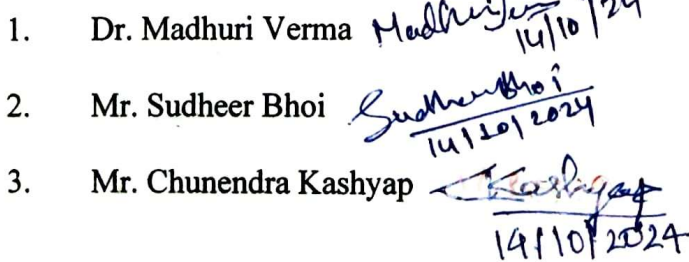 1. Dr. Madhuri Verma Madhuri 14/10/24
2. Mr. Sudheer Bhoi Sudheer Bhoi 14/10/2024
3. Mr. Chunendra Kashyap Kashyap 14/10/2024